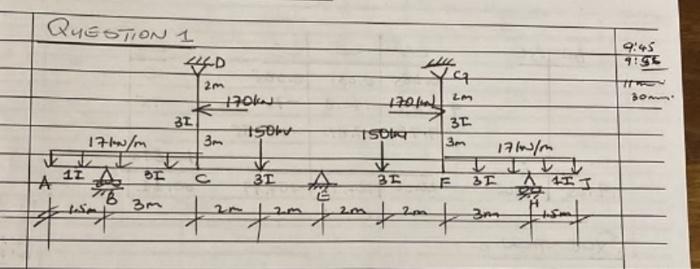 QUESTION 1
9:45
D
G
2m
2m
170kN
170kN
30min
3I
3I
17kN/m
3m
150kN
150kN
3m
17kN/m
A 1I 3I C 3I E 3I F 3I 1I J
B
H
1.5m 3m 2m 2m 2m 2m 3m 1.5m